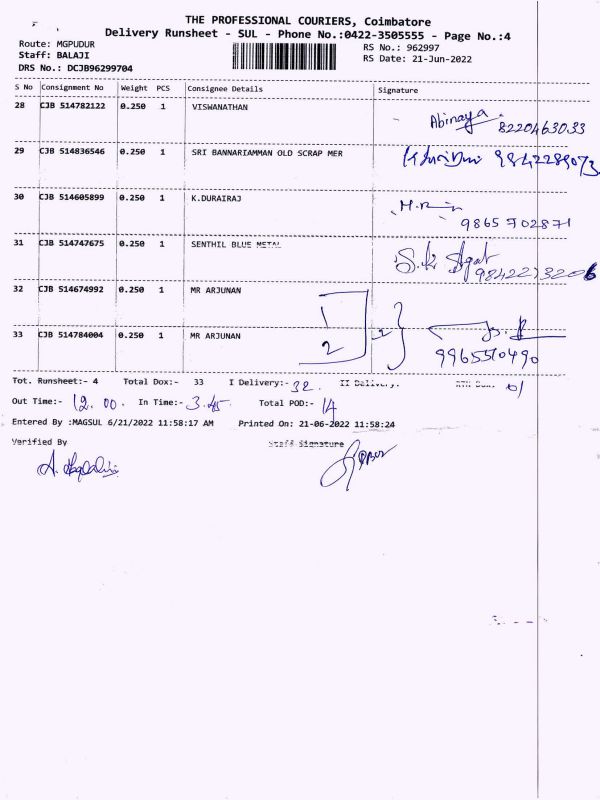 THE PROFESSIONAL COURIERS, Coimbatore
Delivery Runsheet - SUL - Phone No.:0422-3505555 - Page No.:4
Route: MGPUDUR RS No.: 962997
Staff: BALAJI RS Date: 21-Jun-2022
DRS No.: DCJB96299704
S No Consignment No Weight PCS Consignee Details Signature
28 CJB 514782122 0.250 1 VISWANATHAN Abinaya 8220463033
29 CJB 514836546 0.250 1 SRI BANNARIAMMAN OLD SCRAP MER 9842289073
30 CJB 514605899 0.250 1 K.DURAIRAJ
9865702871
31 CJB 514747675 0.250 1 SENTHIL BLUE METAL
9842273206
32 CJB 514674992 0.250 1 MR ARJUNAN
33 CJB 514784004 0.250 1 MR ARJUNAN 2 2
9965510490
Tot. Runsheet:- 4 Total Dox:- 33 I Delivery:- 32. II Delivery:- 01
Out Time:- 12.00. In Time:- 3.45 Total POD:- 14
Entered By :MAGSUL 6/21/2022 11:58:17 AM Printed On: 21-06-2022 11:58:24
Verified By Staff Signature